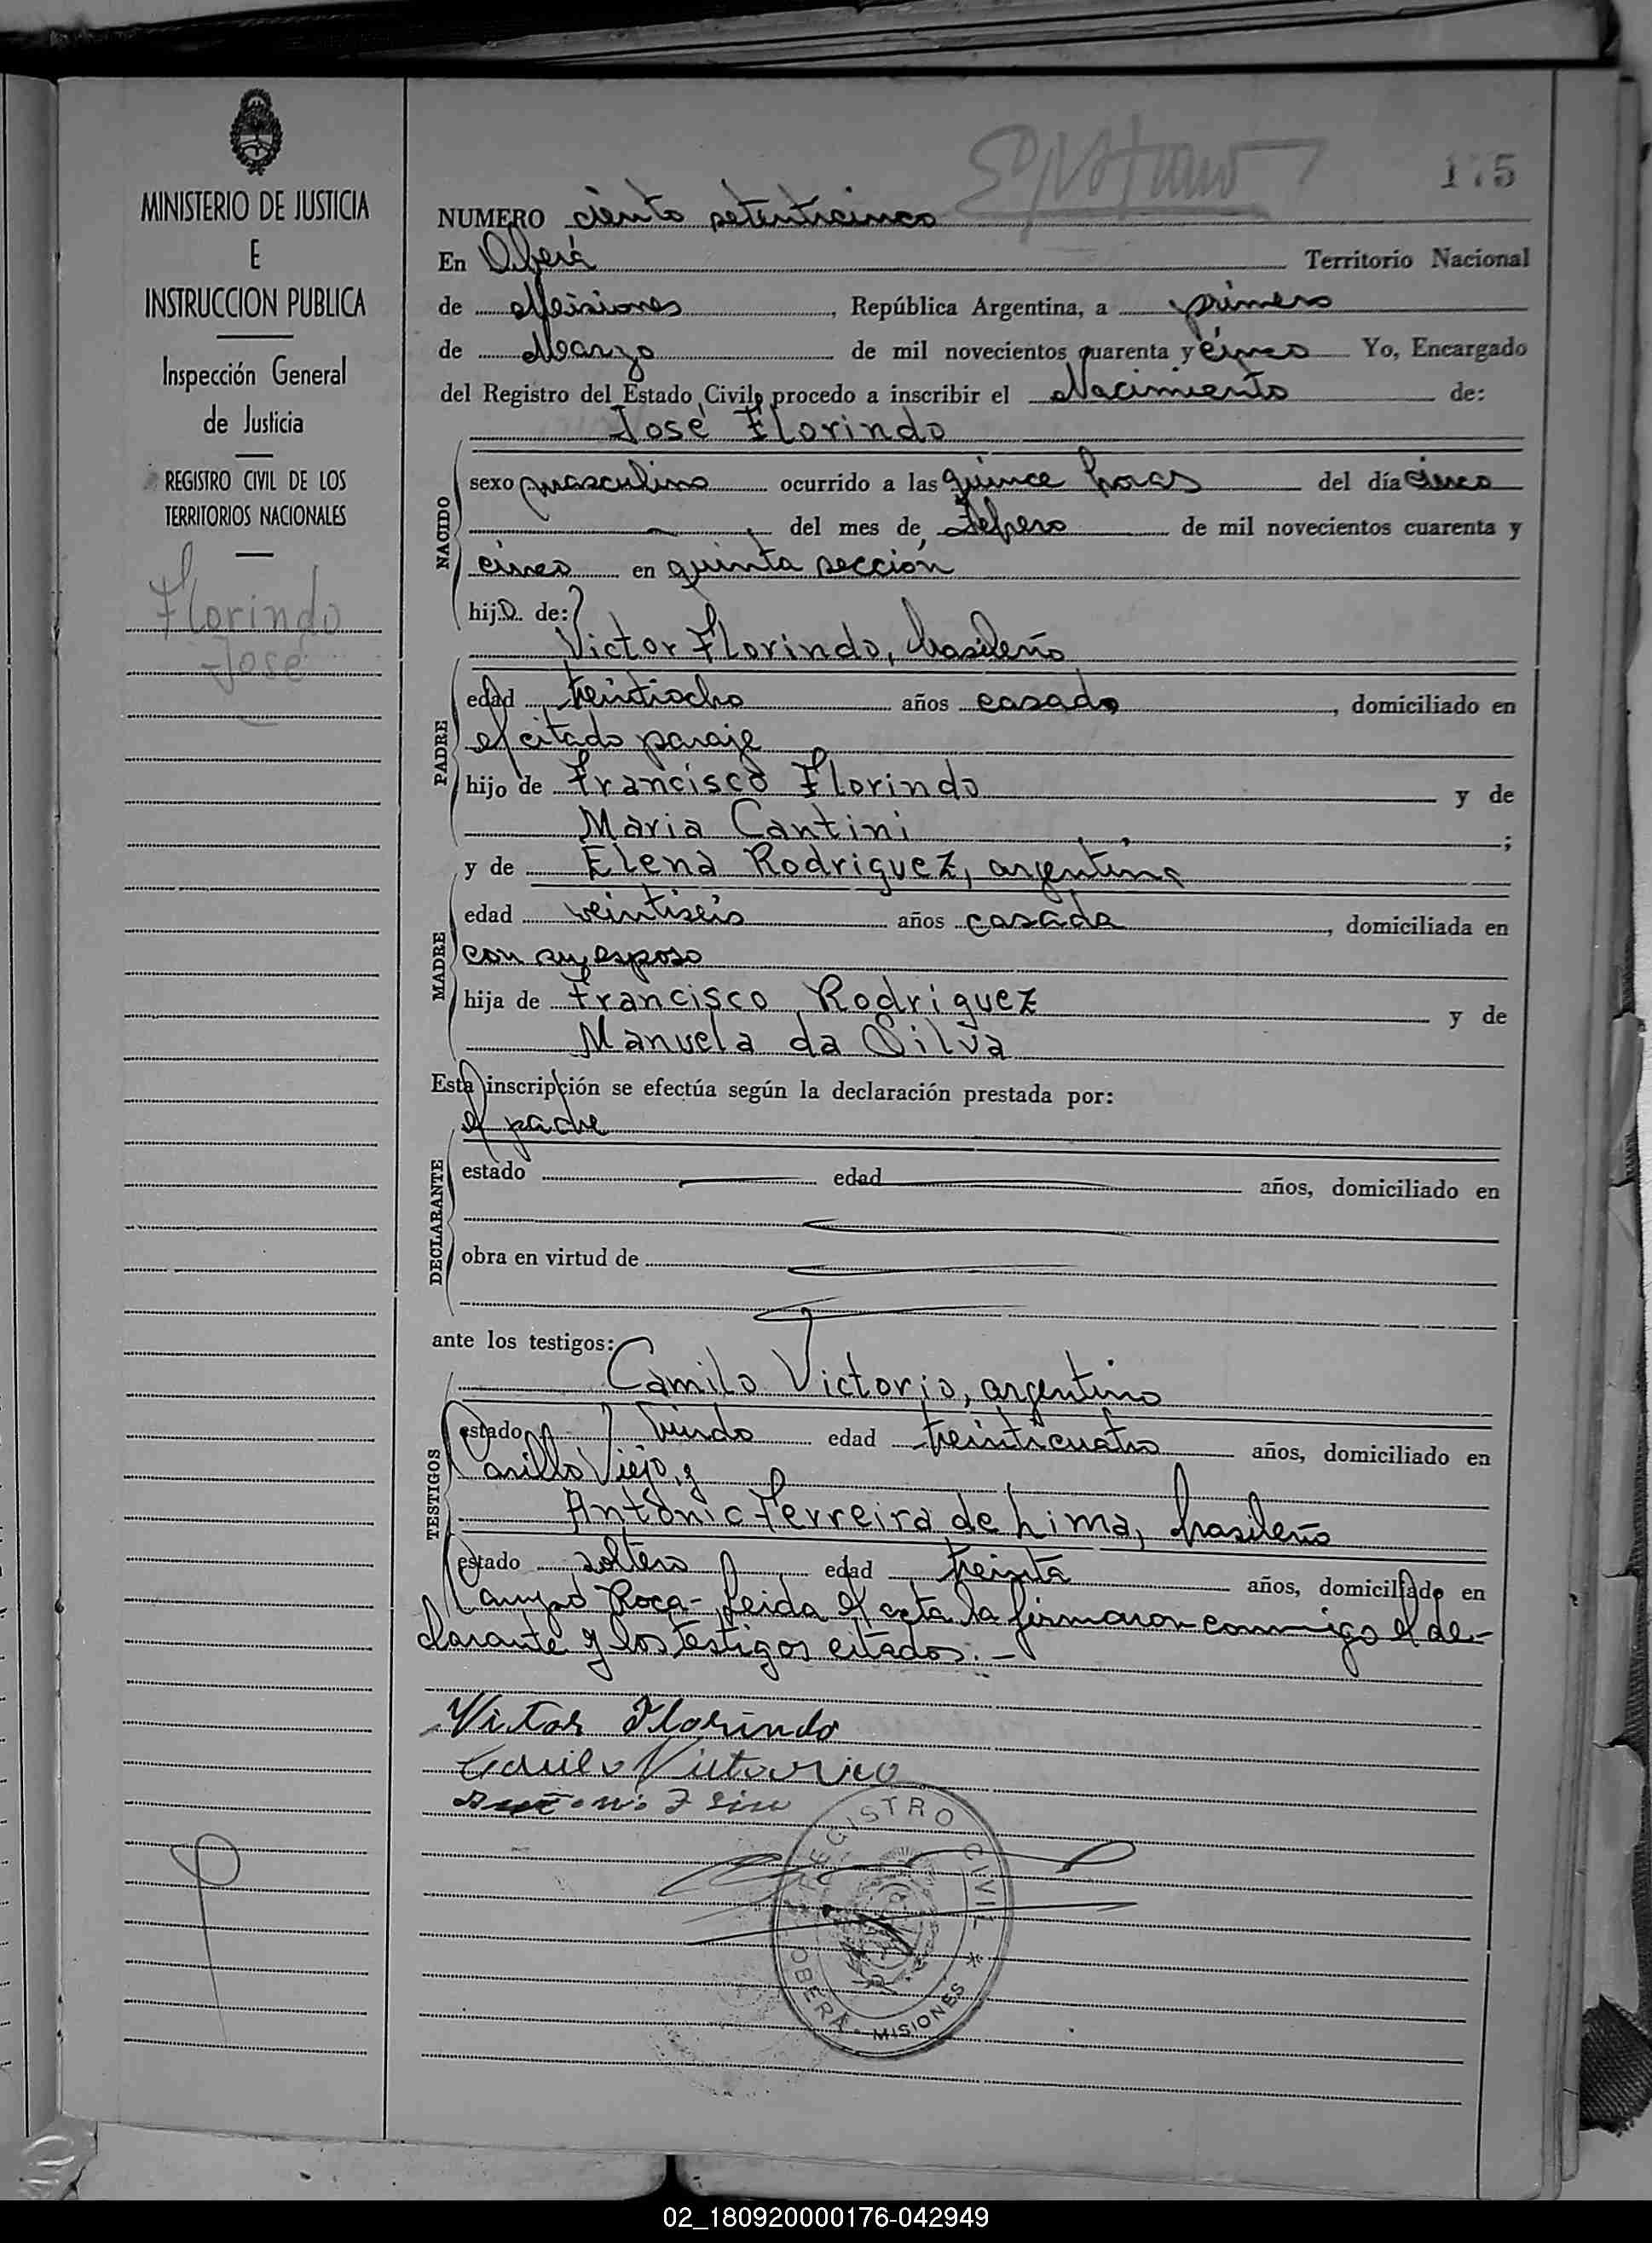 175
MINISTERIO DE JUSTICIA
E
INSTRUCCION PUBLICA
Inspección General
de Justicia
REGISTRO CIVIL DE LOS
TERRITORIOS NACIONALES
Florindo
José
NUMERO ciento setenticinco
En Oberá Territorio Nacional
de Misiones, República Argentina, a primero
de Marzo de mil novecientos cuarenta y cinco Yo, Encargado
del Registro del Estado Civil, procedo a inscribir el Nacimiento de:
José Florindo
NACIDO
sexo masculino ocurrido a las quince horas del día cinco
del mes de Febrero de mil novecientos cuarenta y
cinco en quinta sección
hijo de:
Victor Florindo, brasileño
PADRE
edad treintiocho años casado, domiciliado en
el citado paraje
hijo de Francisco Florindo y de
Maria Cantini ;
y de Elena Rodriguez, argentina
MADRE
edad veintiseis años casada, domiciliada en
con su esposo
hija de Francisco Rodriguez y de
Manuela da Silva
Esta inscripción se efectúa según la declaración prestada por:
el padre
DECLARANTE
estado edad años, domiciliado en
obra en virtud de
ante los testigos:
Camilo Victorio, argentino
TESTIGOS
estado viudo edad treinticuatro años, domiciliado en
Viejo, y
Antonio Ferreira de Lima, brasileño
estado soltero edad treinta años, domiciliado en
Campo Roca- Leida el acta la firmaron conmigo el de-
clarante y los testigos citados.-
Victor Florindo
Camilo Victorio
REGISTRO CIVIL
OBERÁ - MISIONES *
02_180920000176-042949